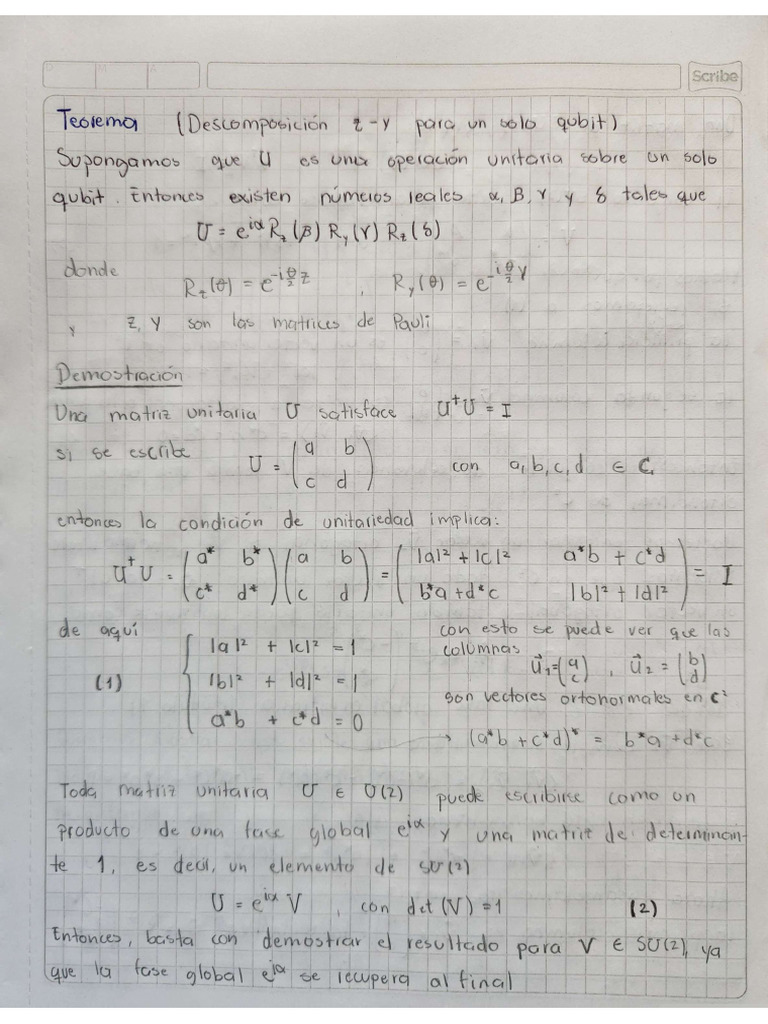 Scribe
Teorema (Descomposición z-y para un solo qubit)
Supongamos que U es una operación unitaria sobre un solo
qubit. Entonces existen números reales α, β, γ y δ tales que
U = e^{iα} R_z(β) R_y(γ) R_z(δ)
donde
R_z(θ) = e^{-i θ/2 z} , R_y(θ) = e^{-i θ/2 Y}
y z, y son las matrices de Pauli
Demostración
Una matriz unitaria U satisface U†U = I
si se escribe U = (a b; c d) con a, b, c, d ∈ ℂ
entonces la condición de unitariedad implica:
U†U = (a* b*; c* d*)(a b; c d) = (|a|² + |c|² a*b + c*d; b*a + d*c |b|² + |d|²) = I
de aquí
(1) { |a|² + |c|² = 1
|b|² + |d|² = 1
a*b + c*d = 0
con esto se puede ver que las
columnas
u⃗₁ = (a; c) , u⃗₂ = (b; d)
son vectores ortonormales en ℂ²
→ (a*b + c*d)* = b*a + d*c
Toda matriz unitaria U ∈ U(2) puede escribirse como un
producto de una fase global e^{iα} y una matriz de determinan-
te 1, es decir, un elemento de SU(2)
U = e^{iα} V , con det(V) = 1 (2)
Entonces, basta con demostrar el resultado para V ∈ SU(2), ya
que la fase global e^{iα} se recupera al final